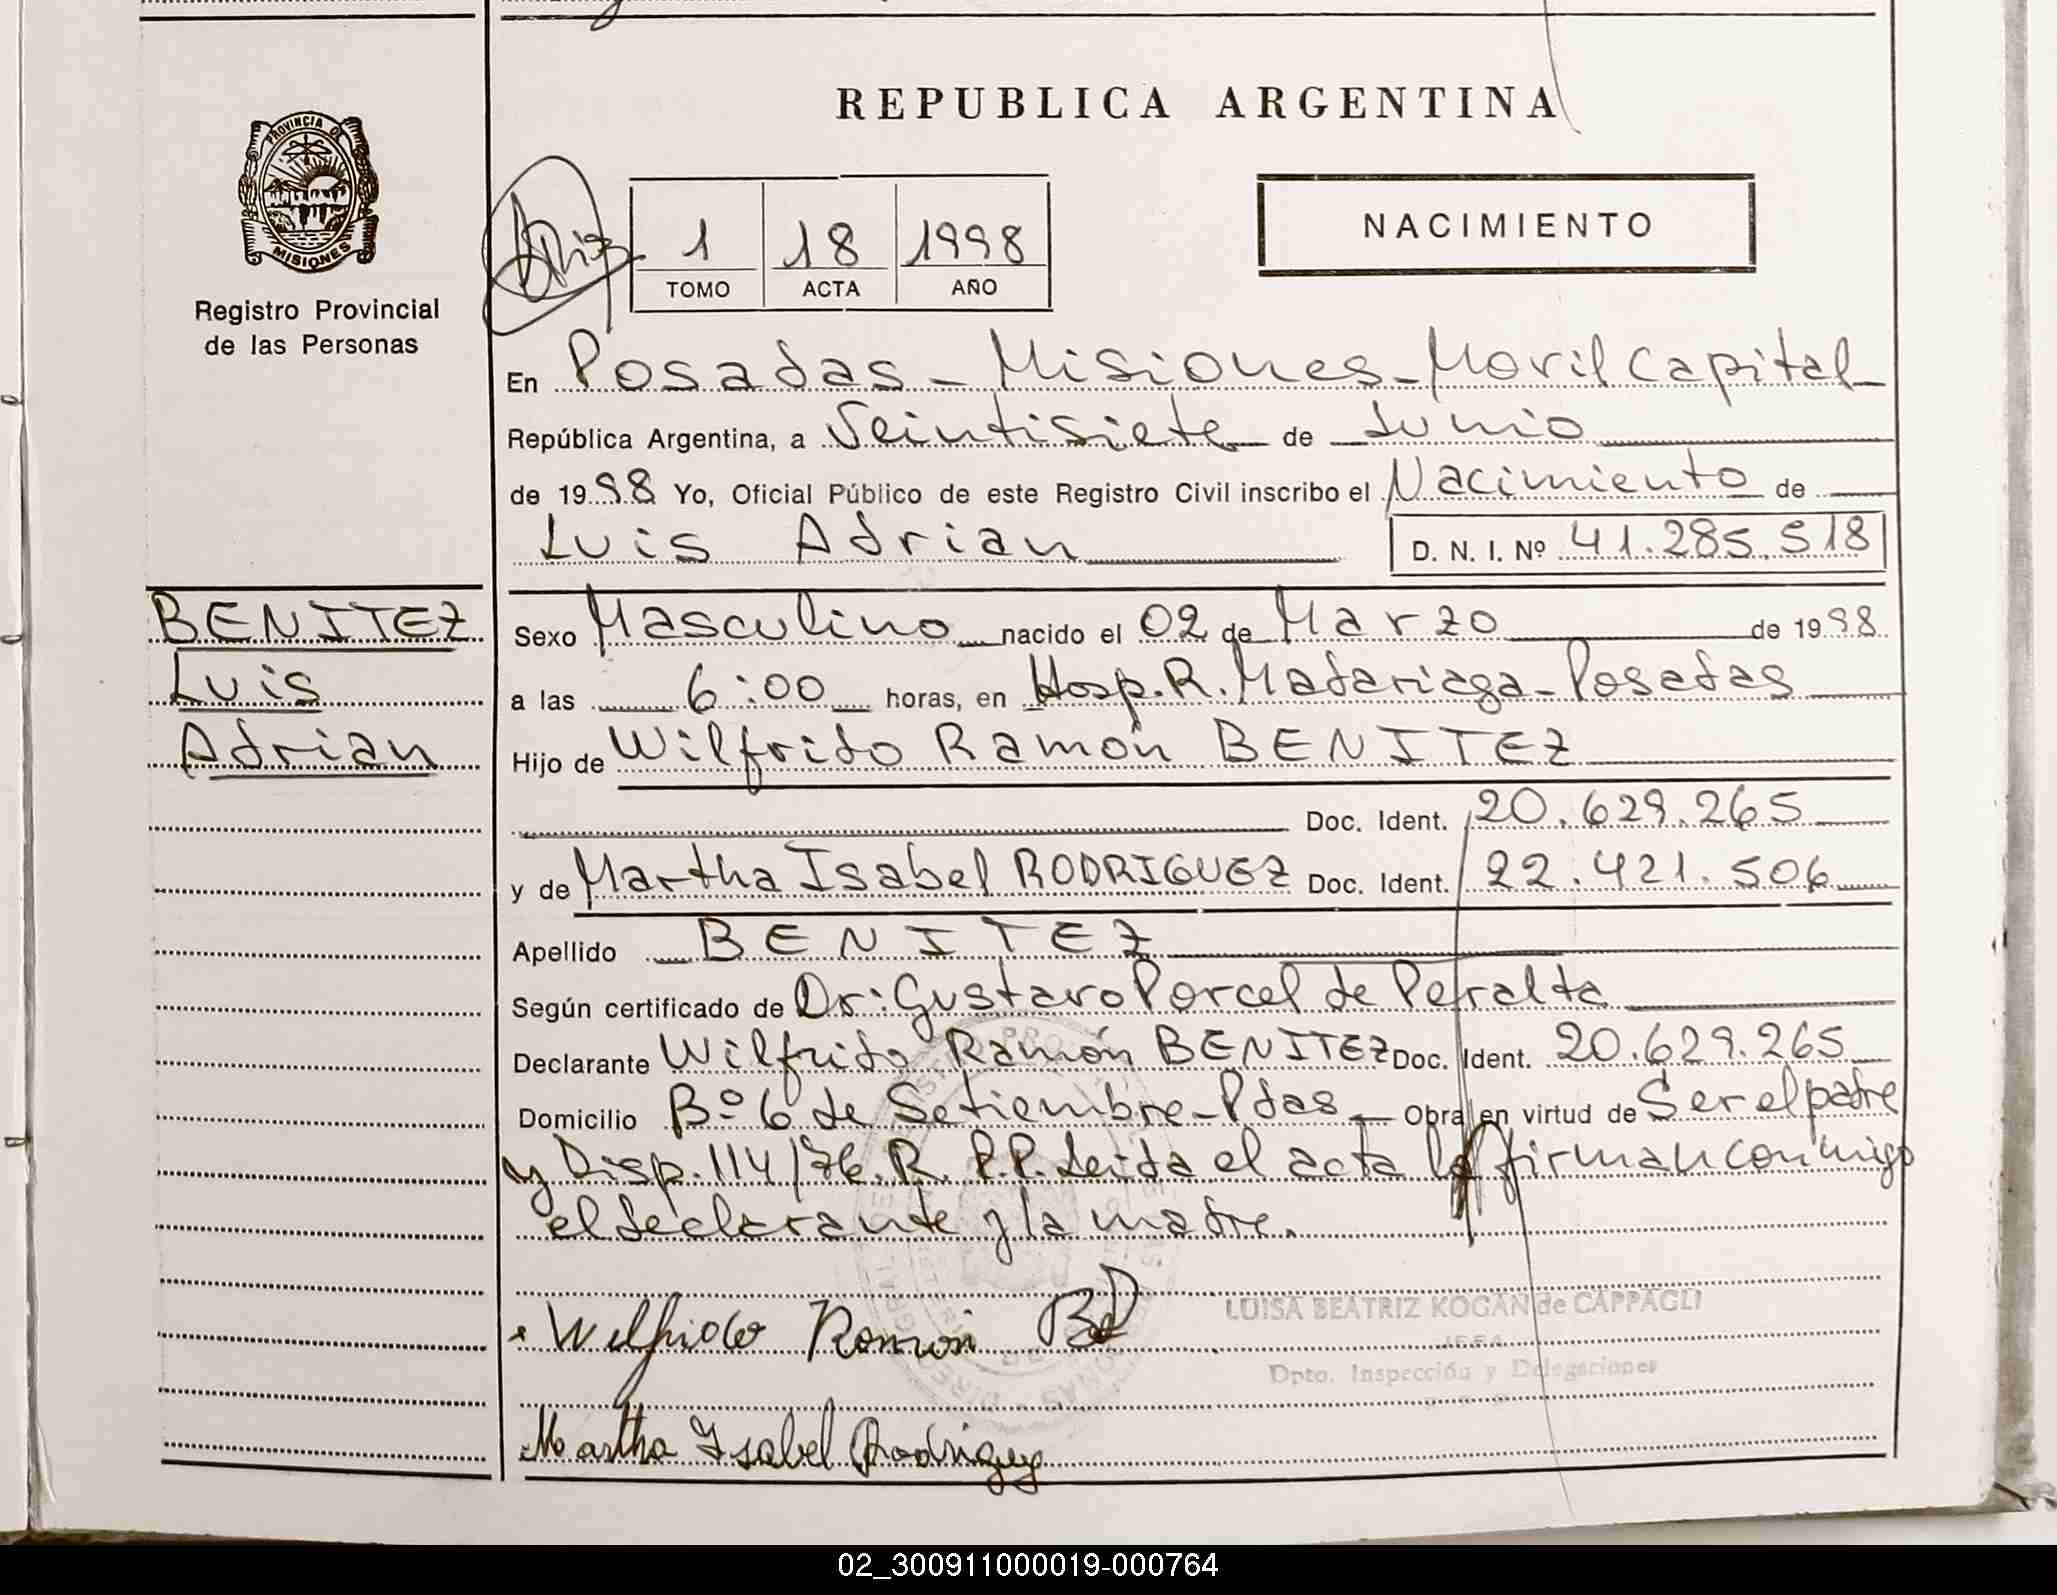 REPUBLICA ARGENTINA
PROVINCIA DE
MISIONES
Registro Provincial
de las Personas
1 18 1998
TOMO ACTA AÑO
NACIMIENTO
En Posadas - Misiones - Movil Capital
República Argentina, a Veintisiete de Junio
de 1998 Yo, Oficial Público de este Registro Civil inscribo el Nacimiento de
Luis Adrian D. N. I. Nº 41.285.518
BENITEZ
Luis
Adrian
Sexo Masculino nacido el 02 de Marzo de 1998
a las 6:00 horas, en Hosp. R. Madariaga - Posadas
Hijo de Wilfrido Ramón BENITEZ
Doc. Ident. 20.629.265
y de Martha Isabel RODRIGUEZ Doc. Ident. 22.421.506
Apellido BENITEZ
Según certificado de Dr: Gustavo Porcel de Peralta
Declarante Wilfrido Ramón BENITEZ Doc. Ident. 20.629.265
Domicilio Bº 6 de Setiembre - Pdas Obra en virtud de Ser el padre
y Disp. 114/76. R. P.P. Leida el acta la firman conmigo
el declarante y la madre.
Wilfrido Ramon
LUISA BEATRIZ KOGAN de CAPPAGLI
JEFA
Dpto. Inspección y Delegaciones
Martha Isabel Rodriguez
02_300911000019-000764